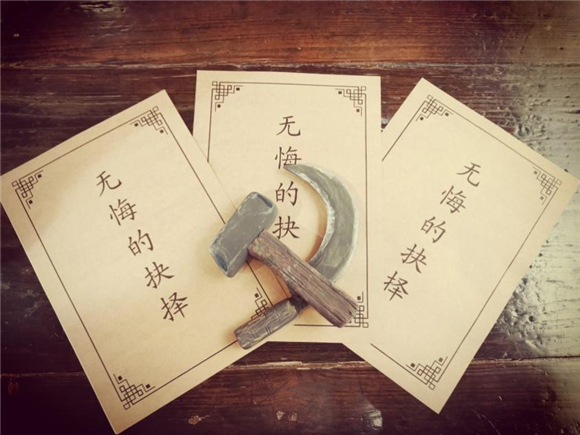 无悔的抉择
无悔的抉
无悔的抉择